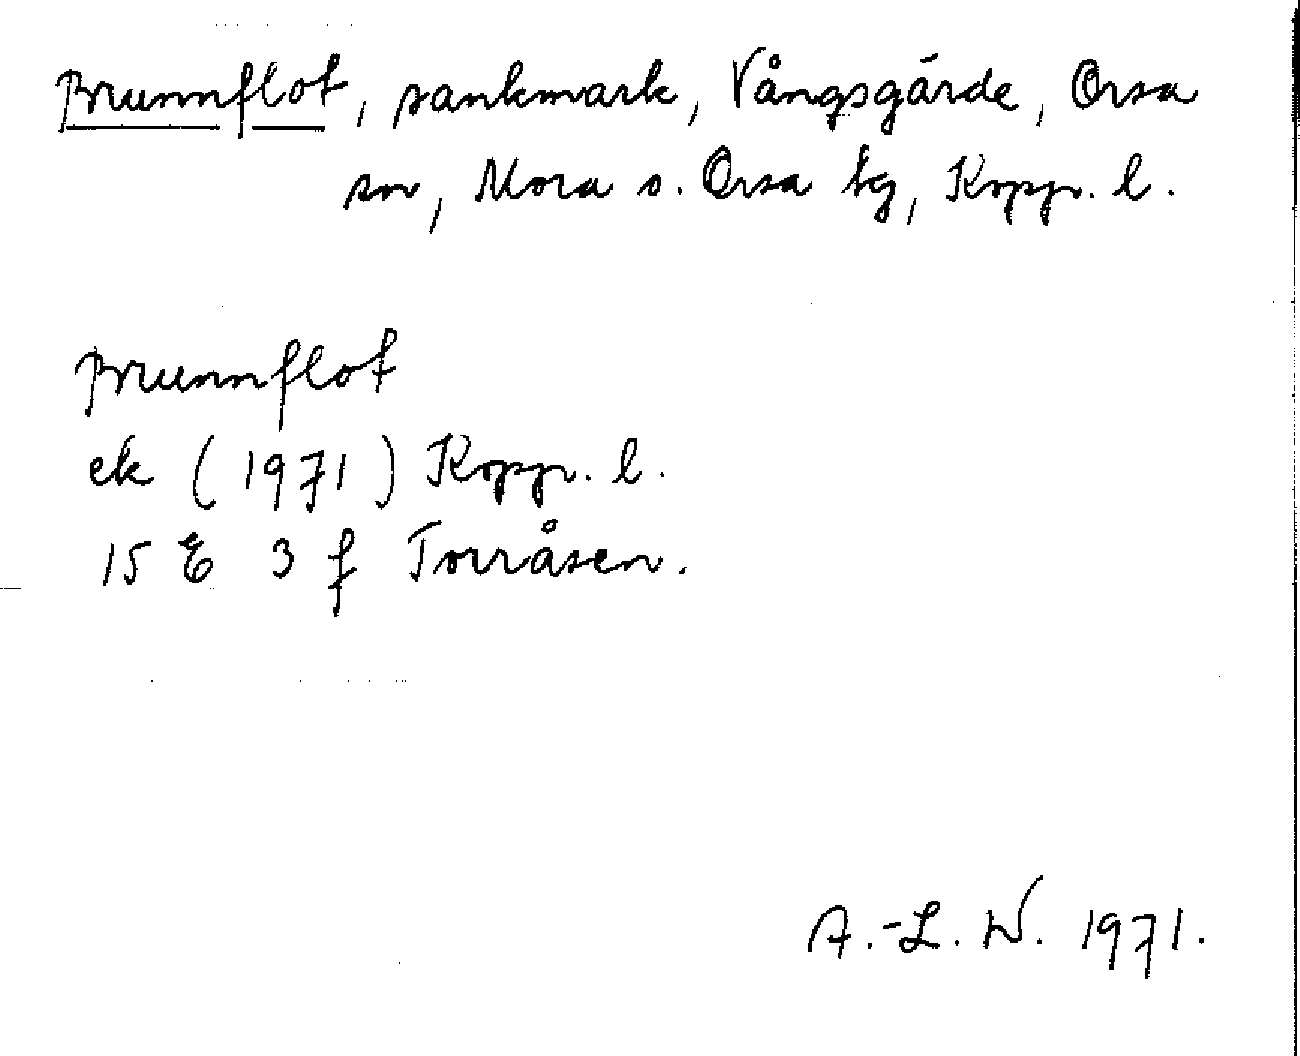 Brunnflot, sankmark, Vångsgärde, Orsa
sn, Mora o. Orsa tg, Kopp. l.
Brunnflot
ek (1971) Kopp. l.
15 E 3 f Torråsen.
A.-L. W. 1971.